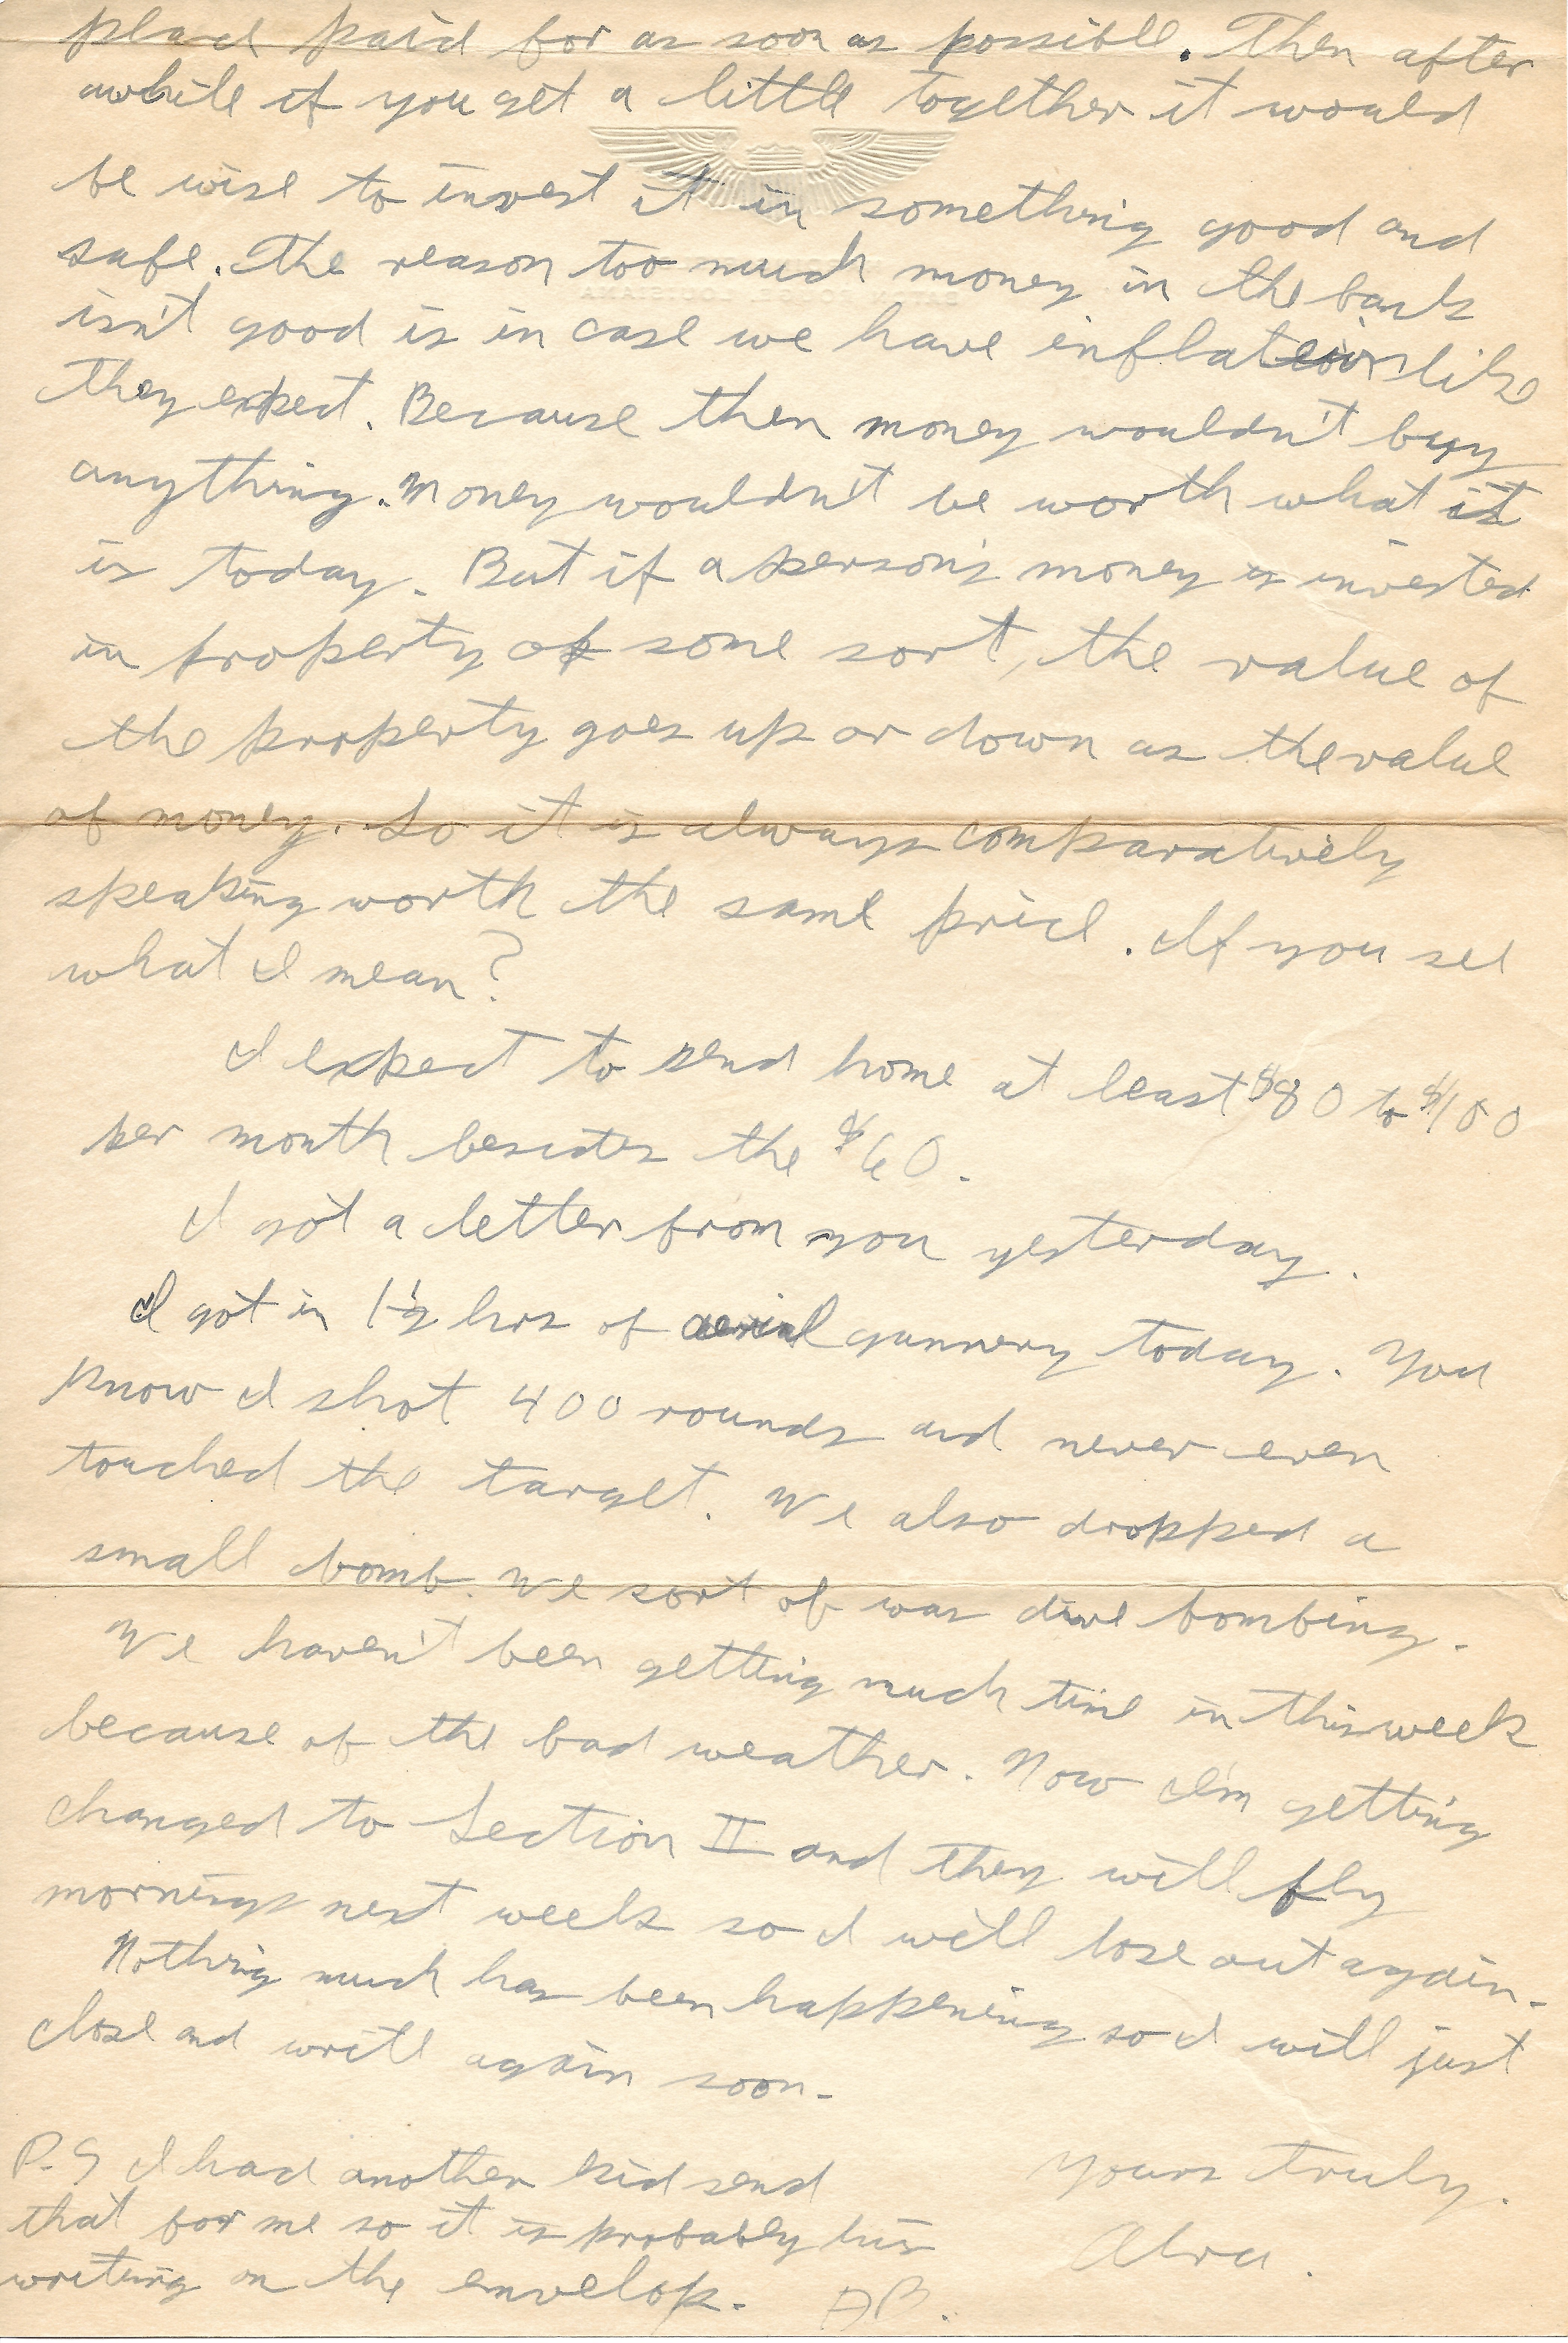 place paid for as soon as possible. Then after
awhile if you get a little together it would
be wise to invest it in something good and
safe. The reason too much money in the bank
isn't good is in case we have inflation like
they expect. Because then money wouldn't buy
anything. Money wouldn't be worth what it
is today. But if a person's money is invested
in property of some sort, the value of
the property goes up or down as the value
of money. So it is always comparatively
speaking worth the same price. If you see
what I mean?
I expect to send home at least $80 to $100
per month besides the $60.
I got a letter from you yesterday.
I got in 1½ hrs of aerial gunnery today. You
know I shot 400 rounds and never even
touched the target. We also dropped a
small bomb. We sort of was dive bombing.
We haven't been getting much time in this week
because of the bad weather. Now I'm getting
changed to Section II and they will fly
mornings next week so I will lose out again.
Nothing much has been happening so I will just
close and write again soon.
Yours truly.
Alva.
P.S I had another kid send
that for me so it is probably his
writing on the envelop. AB.